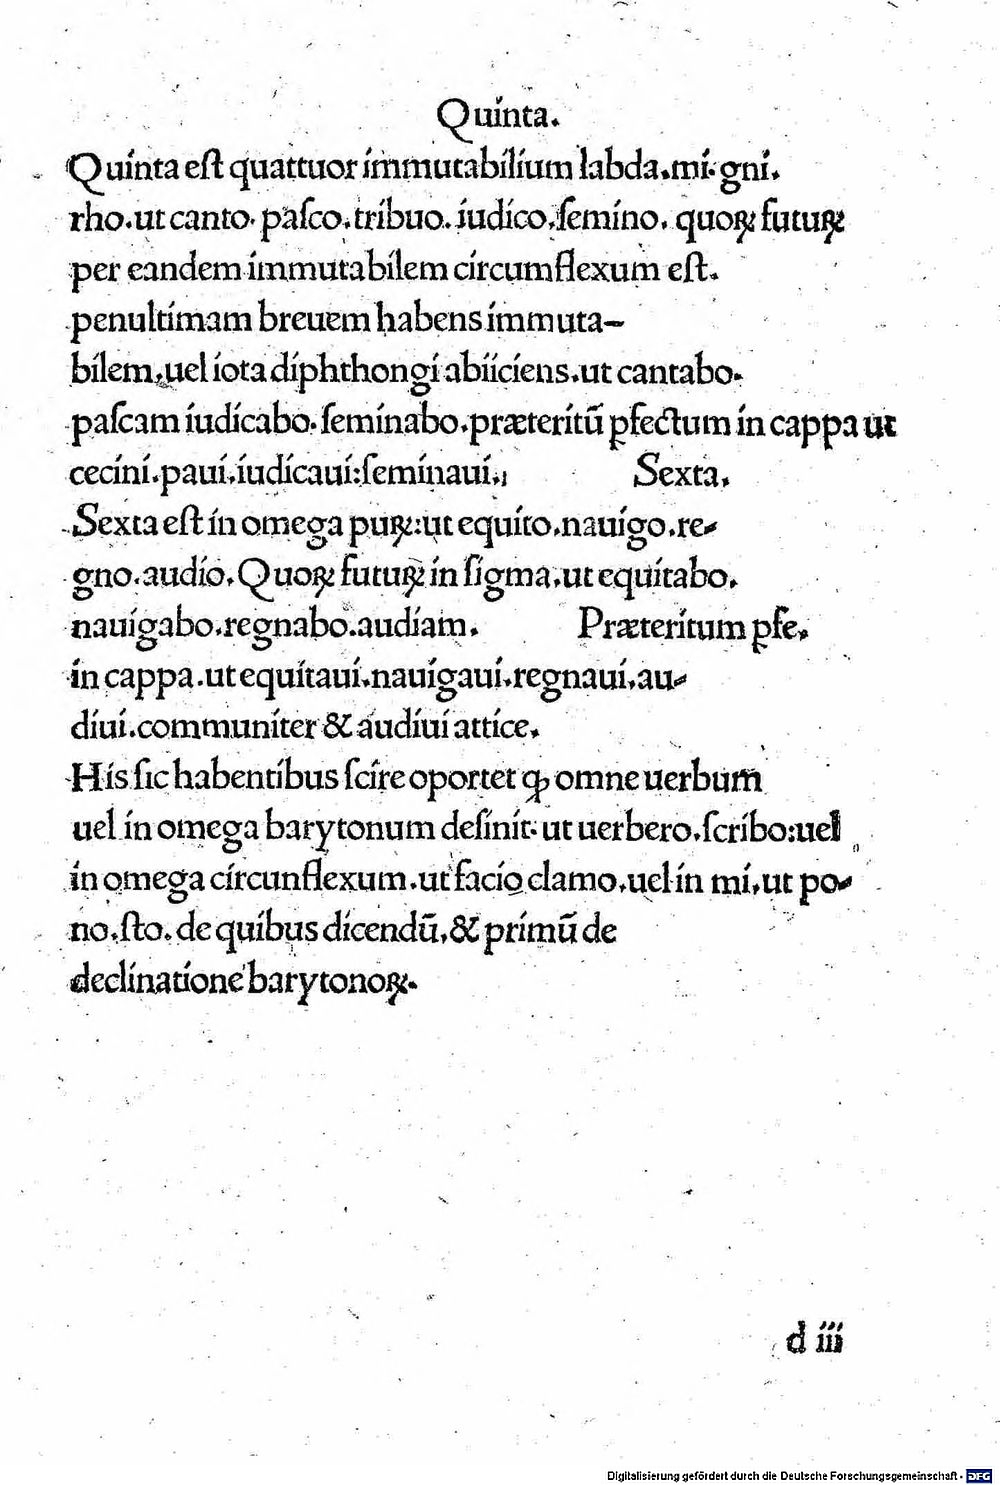 Quinta.
Quinta eſt quattuor immutabilium labda.mi.gni.
rho.ut canto. paſco.tribuo. iudico.ſemino. quoꝝ futuꝝ
per eandem immutabilem circumflexum eſt.
penultimam breuem habens immuta-
bilem,uel iota diphthongi abiiciens.ut cantabo.
paſcam iudicabo. ſeminabo.præteritū ꝑfectum in cappa ut
cecini.paui.iudicaui:ſeminaui. Sexta.
Sexta eſt in omega puꝝ:ut equito.nauigo.re-
gno.audio. Quoꝝ futuꝝ in ſigma.ut equitabo.
nauigabo.regnabo.audiam. Præteritum ꝑfe.
in cappa.ut equitaui.nauigaui.regnaui.au-
diui.communiter & audiui attice.
His ſic habentibus ſcire oportet ꝙ omne uerbum
uel in omega barytonum deſinit: ut uerbero.ſcribo:uel
in omega circunflexum.ut facio clamo.uel in mi.ut po-
no.ſto. de quibus dicendū.& primū de
declinatione barytonoꝝ.
d iii
Digitalisierung gefördert durch die Deutsche Forschungsgemeinschaft - DFG